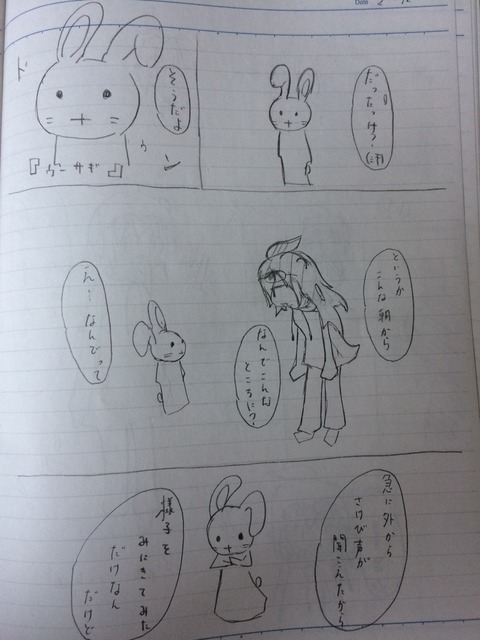 だったっけ?(汗)
そうだよ
ドゥン
『ウーサギ』
というか
こんな朝から
なんでこんな
ところに?
え…なんでって
急に外から
さけび声が
聞こえたから
様子を
みにきてみた
だけなん
だけど